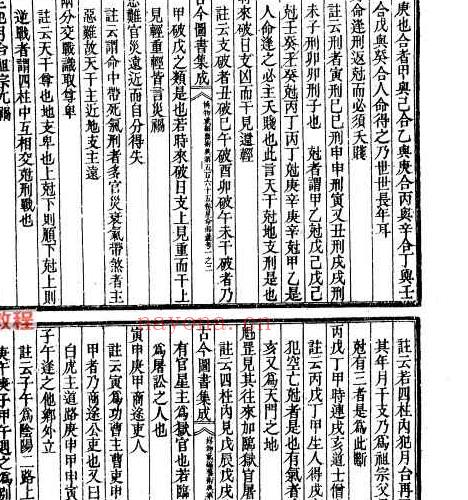 庚也合者甲與己合乙與庚合丙與辛合丁與壬
合戊與癸合人命得之乃世世長年耳
命逢刑返尅而必須夭賤
註云刑者寅刑巳巳刑申申刑寅又丑刑戌戌刑
未子刑卯卯刑子也 尅者謂甲乙尅戊己戊己
尅壬癸壬癸尅丙丁丙丁尅庚辛庚辛尅甲乙
人命逢之必主夭賤也此言天干尅地支刑是也
時來破日支凶而干見遭輕
註云支破者丑破巳午破酉卯破午未干破者乃
古今圖書集成
甲破戊之類是也若時來破日支上見重而干上
見輕重輕皆言災禍
惡難官災遠近而自分得失
註云謂命中帶死氣刑者多官災衰氣帶煞者主
惡難故天干主近地支主遠
兩分交戰識取尊卑
註云天干尊也地支卑也上尅下則順下尅上則
逆戰者謂四柱中互相交尅刑戰也
註云若四柱內犯月台再
其年月干支乃爲祖宗父
尅有三者是爲此斷
丙戌丁甲時連戌亥道士僧
註云丙戌丁甲生人得戌
犯空亡尅者是也有氣者
亥又爲天門之地
魁罡見其往來加臨獄官屠
註云四柱內見戊辰戊戌
古今圖書集成
有官星主爲獄官也若無
爲屠訟之人也
寅申庚甲商途吏人
註云寅爲功曹主曹吏申
甲者乃商途公吏也又曰
白虎主道路庚申甲申寅
子午逢之他鄉外立
註云子午爲陰陽二路上
庚午庚子甲午遇之爲別
教程
nayona.cn